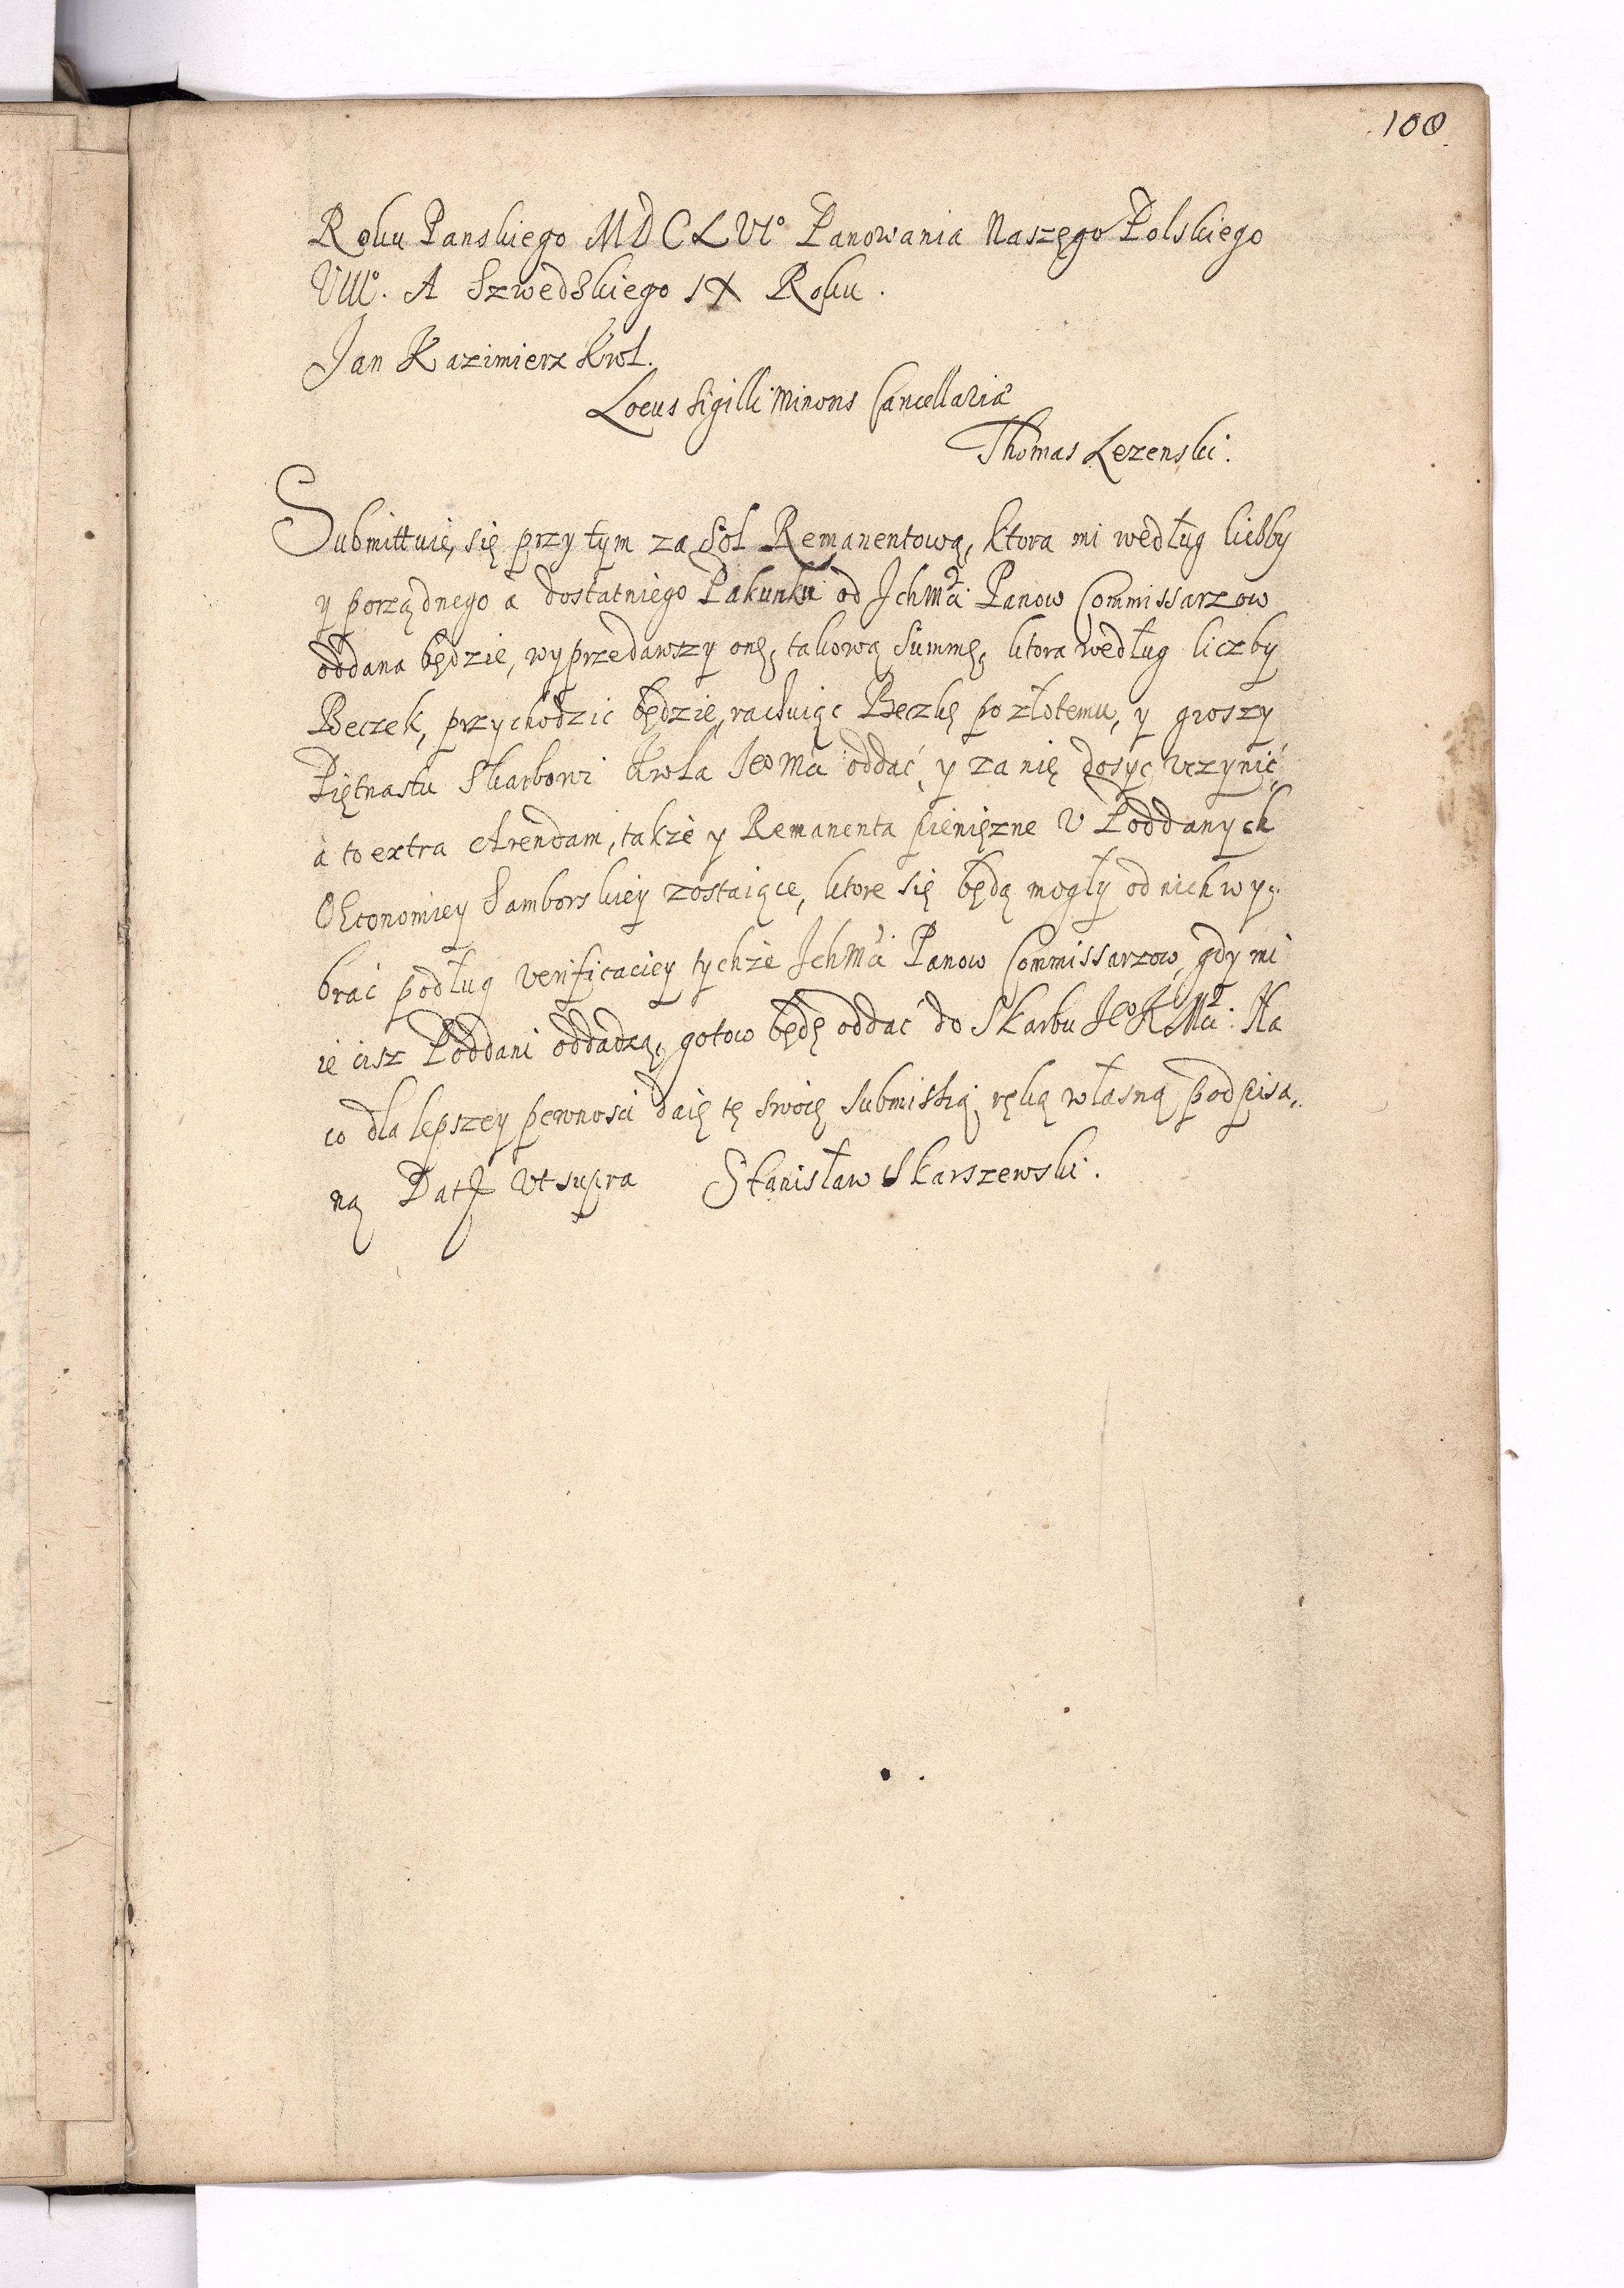 100
Roku Panskiego MDCLVI° Panowania Naszego Polskiego
VIII°. A Szwedskiego IX Roku.
Jan Kazimierz Krol.
Locus Sigilli Minoris Cancellariæ
Thomas Lezenski.
Submittuię się przy tym za Sol Remanentową, ktora mi według liczby
y porządnego a dostatniego Pakunku od Ichmci Panow Commissarzow
oddana będzie, wyprzedawszy onę, takową Summę, ktora według liczby
Beczek, przychodzic będzie, rachuiąc Beczkę po złotemu, y groszy
Piętnastu Skarbowi Krola Je° Mci oddać, y za nię dosyc vczynić,
a to extra Arendam, także y Remanenta pieniężne V Poddanych
Œconomiey Samborskiey zostaiące, ktore się będą mogły od nich wy-
brać podług verificaciey tychże Ichmci Panow Commissarzow, gdy mi
ie cisz Poddani oddadzą, gotow będę oddać do Skarbu Je° K Mci: Na
co dla lepszey pewnosci daię tę swoię submissią, ręką własną podpisa,
ną Datt Vt supra Stanisław Skarszewski.